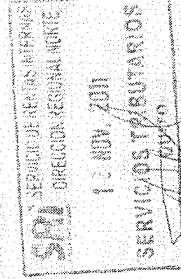 SRI SERVICIO DE RENTAS INTERNAS
DIRECCION REGIONAL NORTE
NOV 2011
SERVICIOS TRIBUTARIOS
QUITO